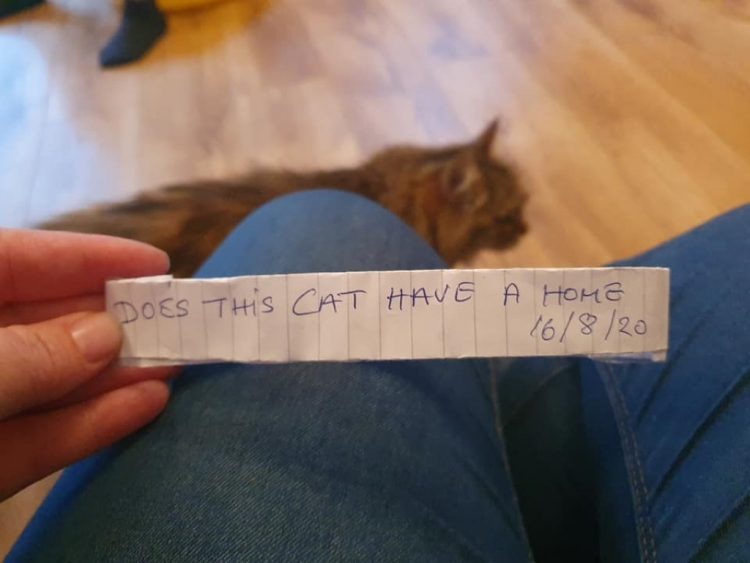 DOES THIS CAT HAVE A HOME
16/8/20